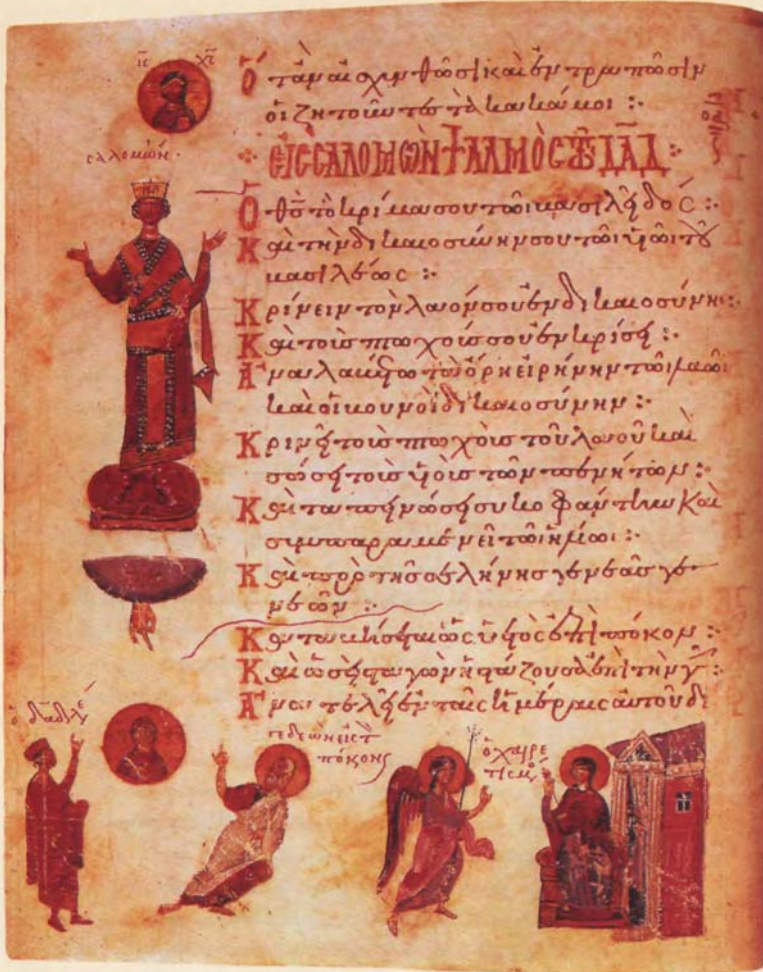 ΙϹ ΧϹ
ὅταν αἰσχυνθῶσι καὶ ἐντραπῶσιν
οἱ ζητοῦντες τὰ κακά μοι :·
σαλομών·
ΕΙϹ ϹΑΛΟΜΩΝ ΨΑΛΜΟϹ ΤΩ ΔΑΔ :·
Ὁ θς τὸ κρίμα σου τῶι βασιλεῖ δός :·
Καὶ τὴν δικαιοσύνην σου τῶι υἱῶι τοῦ
βασιλέως :·
Κρίνειν τὸν λαόν σου ἐν δικαιοσύνηι :·
Καὶ τοὺς πτωχούς σου ἐν κρίσει :·
Ἀναλαβέτω τὰ ὄρη εἰρήνην τῶι λαῶι
καὶ οἱ βουνοὶ δικαιοσύνην :·
Κρινεῖ τοὺς πτωχοὺς τοῦ λαοῦ καὶ
σώσει τοὺς υἱοὺς τῶν πενήτων :·
Καὶ ταπεινώσει συκοφάντην Καὶ
συμπαραμενεῖ τῶι ἡλίωι :·
Καὶ πρὸ τῆς σελήνης γενεὰς γε
νεῶν :·
Καταβήσεται ὡς ὑετὸς ἐπὶ πόκον :·
Καὶ ὡσεὶ σταγὼν ἡ στάζουσα ἐπὶ τὴν γῆν :·
Ἀνατελεῖ ἐν ταῖς ἡμέραις αὐτοῦ δι
ὁ δαδ λέγ
γεδεὼν εἰς τ
πόκον
ὁ χαιρε
τισμός